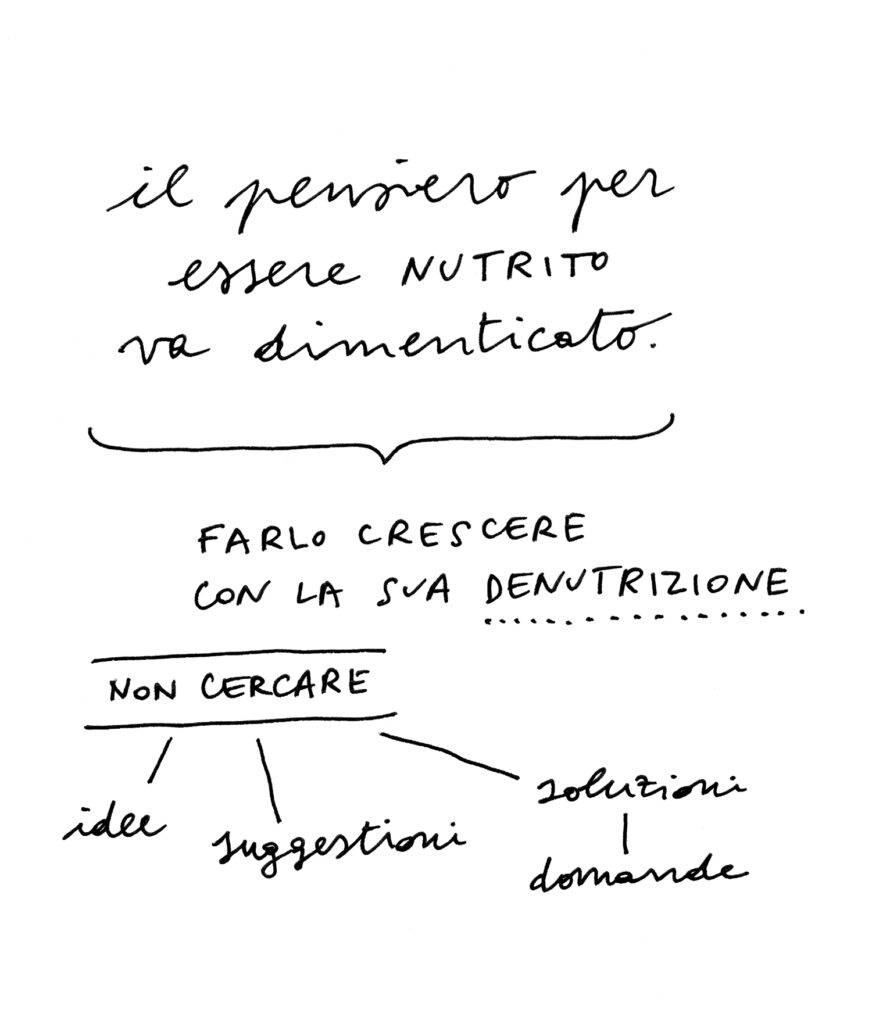 il pensiero per
essere NUTRITO
va dimenticato.
FARLO CRESCERE
CON LA SUA DENUTRIZIONE
NON CERCARE
idee
suggestioni
soluzioni
domande